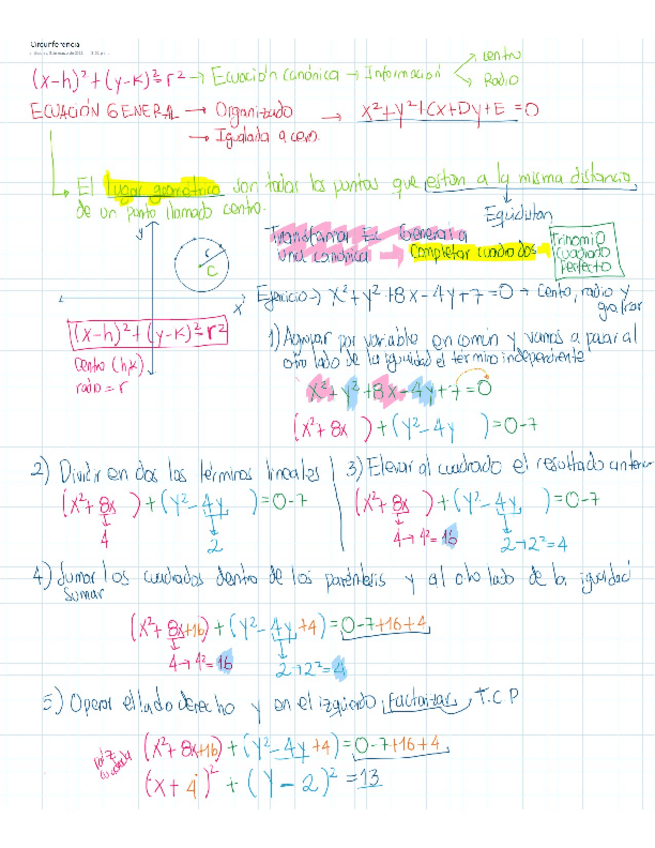 Circunferencia
(x-h)²+(y-k)²=r² → Ecuación canónica → Información
centro
Radio
ECUACIÓN GENERAL → Organizado → x²+y²+Cx+Dy+E=0
→ Igualada a cero.
El lugar geométrico son todos los puntos que estan a la misma distancia
de un punto llamado centro.
Equidistan
Transformar Ec General a
una canónica → Completar cuadrados →
Trinomio
Cuadrado
Perfecto
y
r
C
x
(x-h)²+(y-k)²=r²
Centro (h,k)
radio = r
Ejercicio → x²+y²+8x-4y+7=0 → Centro, radio y
graficar
1) Agrupar por variable en común y vamos a pasar al
otro lado de la igualdad el término independiente
x²+y²+8x-4y+7=0
(x²+8x )+(y²-4y )=0-7
2) Dividir en dos los términos lineales
(x²+8x )+(y²-4y )=0-7
4
2
3) Elevar al cuadrado el resultado anterior
(x²+8x )+(y²-4y )=0-7
4→4²=16
2→2²=4
4) Sumar los cuadrados dentro de los paréntesis y al otro lado de la igualdad
Sumar
(x²+8x+16)+(y²-4y+4)=0-7+16+4
4→4²=16
2→2²=4
5) Operar el lado derecho y en el izquierdo factorizar T.C.P
raíz
cuadrada
(x²+8x+16)+(y²-4y+4)=0-7+16+4
(x+4)²+(y-2)²=13